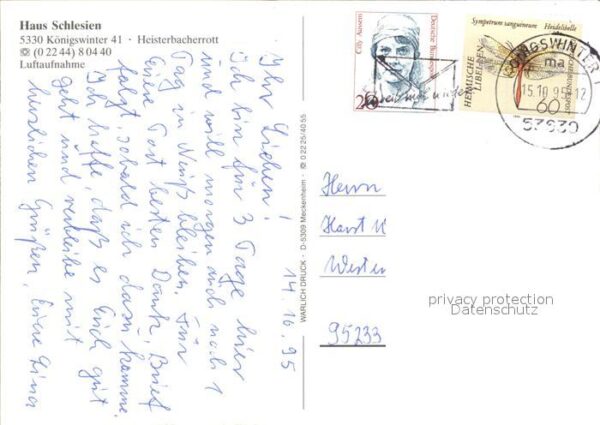 Haus Schlesien
5330 Königswinter 41 · Heisterbacherrott
☎ (0 22 44) 8 04 40
Luftaufnahme
14.10.95
Ihr Lieben!
Ich bin für 3 Tage hier
und will morgen auch noch 1
Tag in Neuß bleiben. Für
Eure Post besten Dank, Brief
folgt, sobald ich dazu komme.
Ich hoffe, daß es Euch gut
geht und verbleibe mit
herzlichen Grüßen, Eure
WARLICH DRUCK · D-5309 Meckenheim · ☎ 0 22 25/40 55
Cilly Aussem
Deutsche Bundespost
20
Sympetrum sanguineum Heidelibelle
HEIMISCHE LIBELLEN
60
KÖNIGSWINTER 1
ma
15.10.95-12
Herrn
Horst
95233
privacy protection
Datenschutz